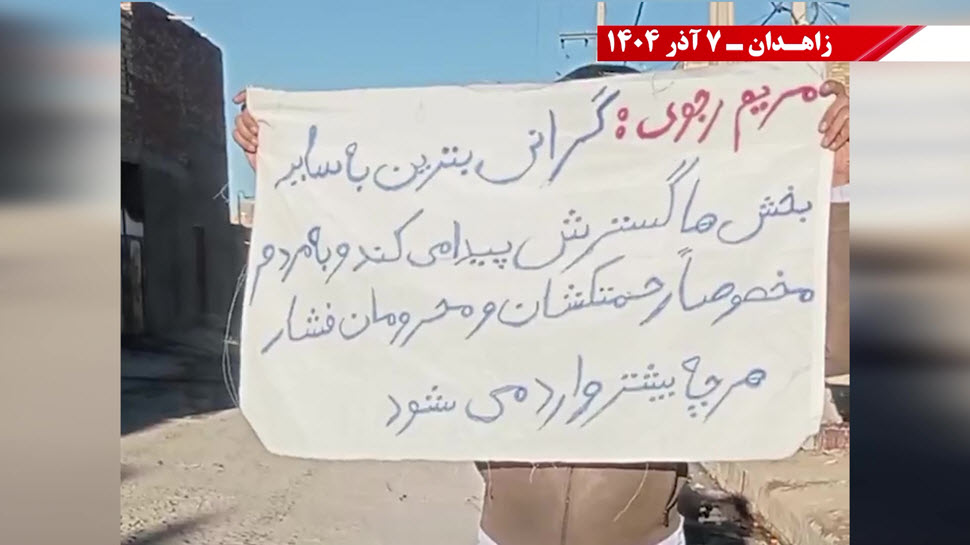 زاهـدان ـ ۷ آذر ۱۴۰۴
مریم رجوی: گرانی بنزین به سایر
بخش ها گسترش پیدا می کند و به مردم
مخصوصاً زحمتکشان و محرومان فشار
هرچه بیشتر وارد می شود